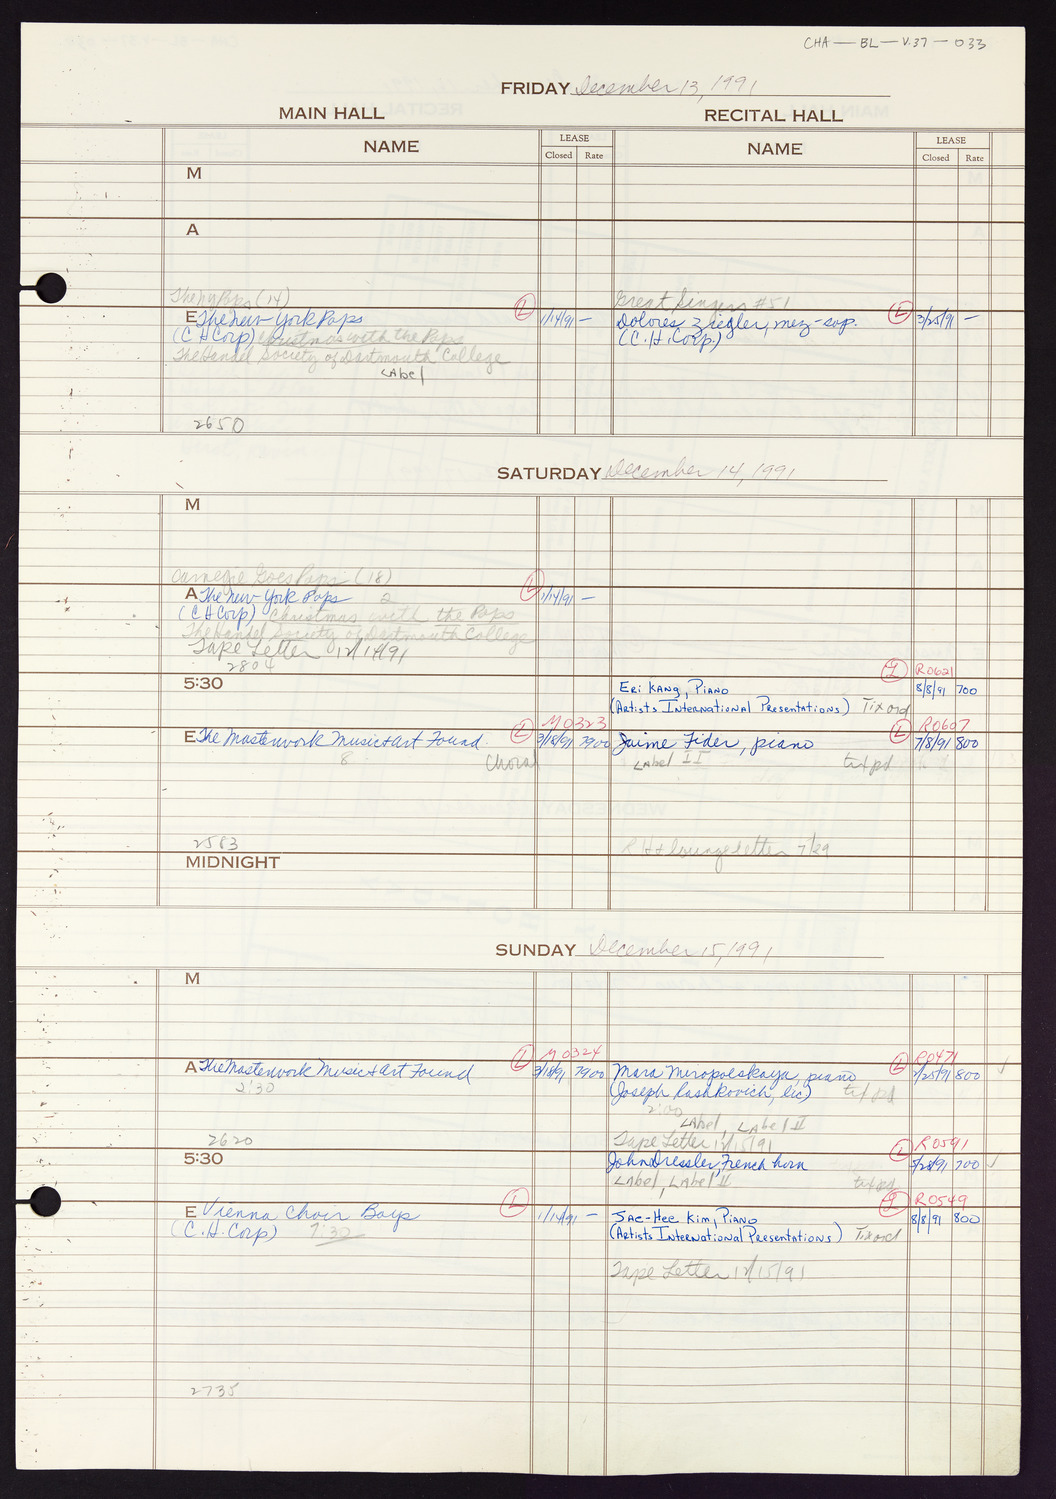 CHA — BL — V.37 — 033
FRIDAY December 13, 1991
MAIN HALL
RECITAL HALL
NAME
LEASE
Closed Rate
NAME
LEASE
Closed Rate
M
A
The NY Pops (14)
Great Singers #51
E The New York Pops L 1/14/91 —
Dolores Ziegler, mez-sop. L 3/25/91 —
(C H Corp) Christmas with the Pops
(C.H. Corp.)
The Handel Society of Dartmouth College
LAbel
2650
SATURDAY December 14, 1991
M
Carnegie Goes Pops (18)
A The New York Pops 2 L 1/14/91 —
(C H Corp) Christmas with the Pops
The Handel Society of Dartmouth College
Tape Letter 12/14/91
2804
R0621
5:30
Eri Kang, Piano 8/8/91 700
(Artists International Presentations) Tix ord
M0323
R0607
E The Masterwork Music & Art Found. L 3/18/91 7900
Jaime Fider, piano L 7/8/91 800
8 Choral
LAbel II tix pd
2583
RH Lounge Letter 7/29
MIDNIGHT
SUNDAY December 15, 1991
M
M0324
R0471
A The Masterwork Music & Art Found L 3/18/91 7900
Mara Miropolskaya, piano L 1/25/91 800
2:30
(Joseph Rashkovich, lic) tix pd
2:00
LAbel, LAbel II
2620
Tape Letter 12/15/91
R0591
5:30
John Dressler, French horn L 5/28/91 700
LAbel, LAbel II tix pd
R0549
E Vienna Choir Boys L 1/14/91 —
Jae-Hee Kim, Piano 8/8/91 800
(C.H. Corp) 7:30
(Artists International Presentations) Tix ord
Tape Letter 12/15/91
2735